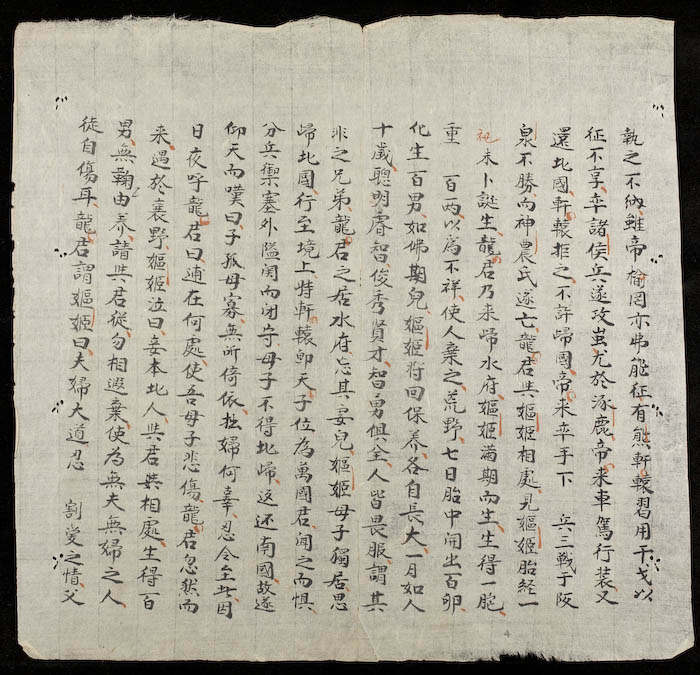 執之不納蚩帝榆罔亦弗能征有熊軒轅習用干戈以
征不享卒諸侯兵遂攻蚩尤於涿鹿帝來車駕行裝又
還北國軒轅拒之不許歸國帝來卒手下 兵三戰于阪
泉不勝而神農氏遂亡龍君與嫗姬相處見嫗姬胎経一
祀未卜誕生龍君乃来歸水府嫗姬滿期而生生得一胞
重 百兩以為不祥使人棄之荒野七日胞中開出百卵
化生百男如佛期兒嫗姬將回保養各自長大一月如人
十歲聰明睿智俊秀賢才智勇俱全人皆畏服謂其
非之兄弟龍君之居水府忘其妻兒嫗姬母子獨居思
歸北國行至境上時軒轅即天子位為萬國君聞之而惧
分兵禦塞外隘関而閉守母子不得北歸返还南國故遂
仰天而嘆曰子孤母寡無所倚依拙婦何辜忍令至此因
日夜呼龍君曰逋在何處使吾母子悲傷龍君忽然而
来遇於襄野嫗姬泣曰妾本北人與君共相處生得百
男無鞠由养請與君從勿相遐棄使為無夫無婦之人
徒自傷耳龍君謂嫗姬曰夫婦大道忍 割愛之情父
4